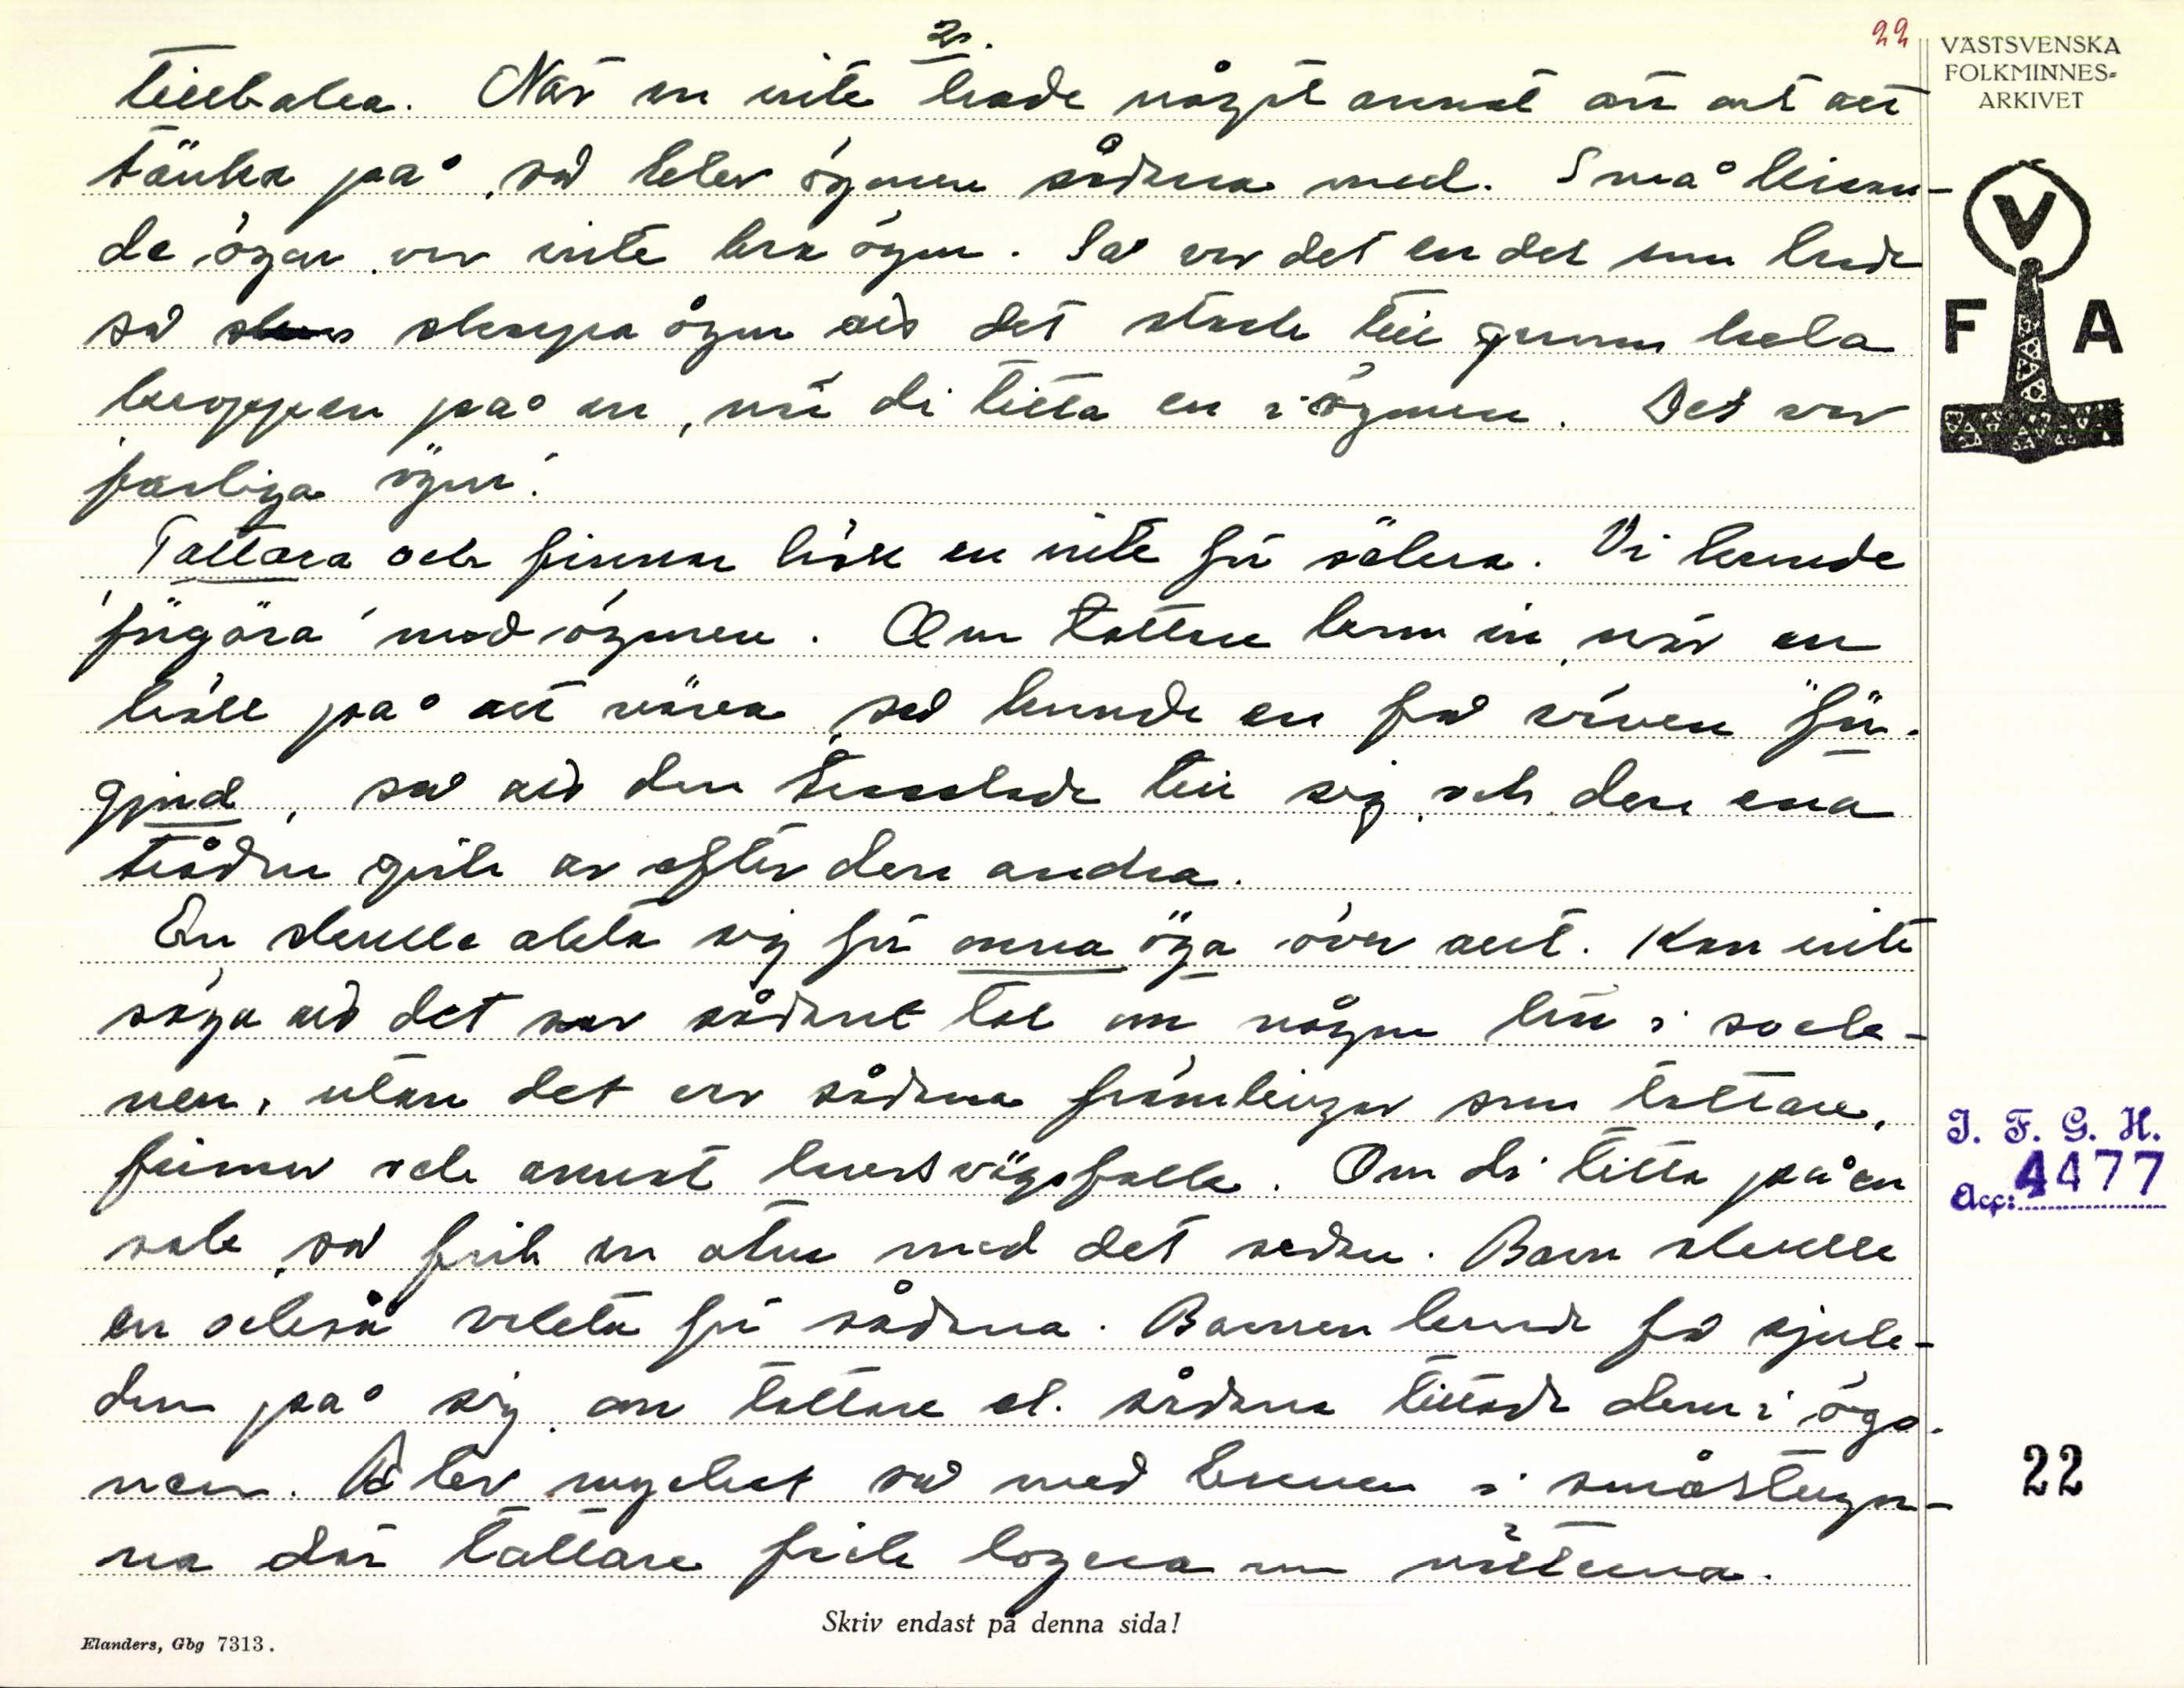 2.
22
VÄSTSVENSKA
FOLKMINNES-
ARKIVET
tillbaka. När en inte hade något annat än ont att
tänka på, så blev ögonen sådana med. Små
de ögon var inte bra ögon. Så var det en del som hade
så skarpa ögon att det stack till genom hela
kroppen på en, när di titta en i ögonen. Det var
farliga ögon.
V
F A
Tattara och finnar höll en inte för säkra. Vi kunde
"förgöra" med ögonen. Om tattare kom in, när en
höll på att väva, så kunde en få väven "för-
gjod", så att den trasslade till sig, och den ena
tråden gick av efter den andra.
En skulle akta sig för onna öga över allt. Kan inte
säga att det var sådant tal om någon här i sock-
nen, utan det var sådana främlingar som tattare,
finnar och annat landsvägsfolk. Om di titta på en
sak, så fick en otur med det sedan. Barn skulle
en också vakta för sådana. Barnen kunde få sjuk-
dom på sig, om tattare el. sådana tittade dem i ögo-
nen. Blev mycket så med barnen i småstugor-
na där tattare fick logera om nätterna.
J. F. G. H.
Acc: 4477
22
Skriv endast på denna sida!
Elanders, Gbg 7313.